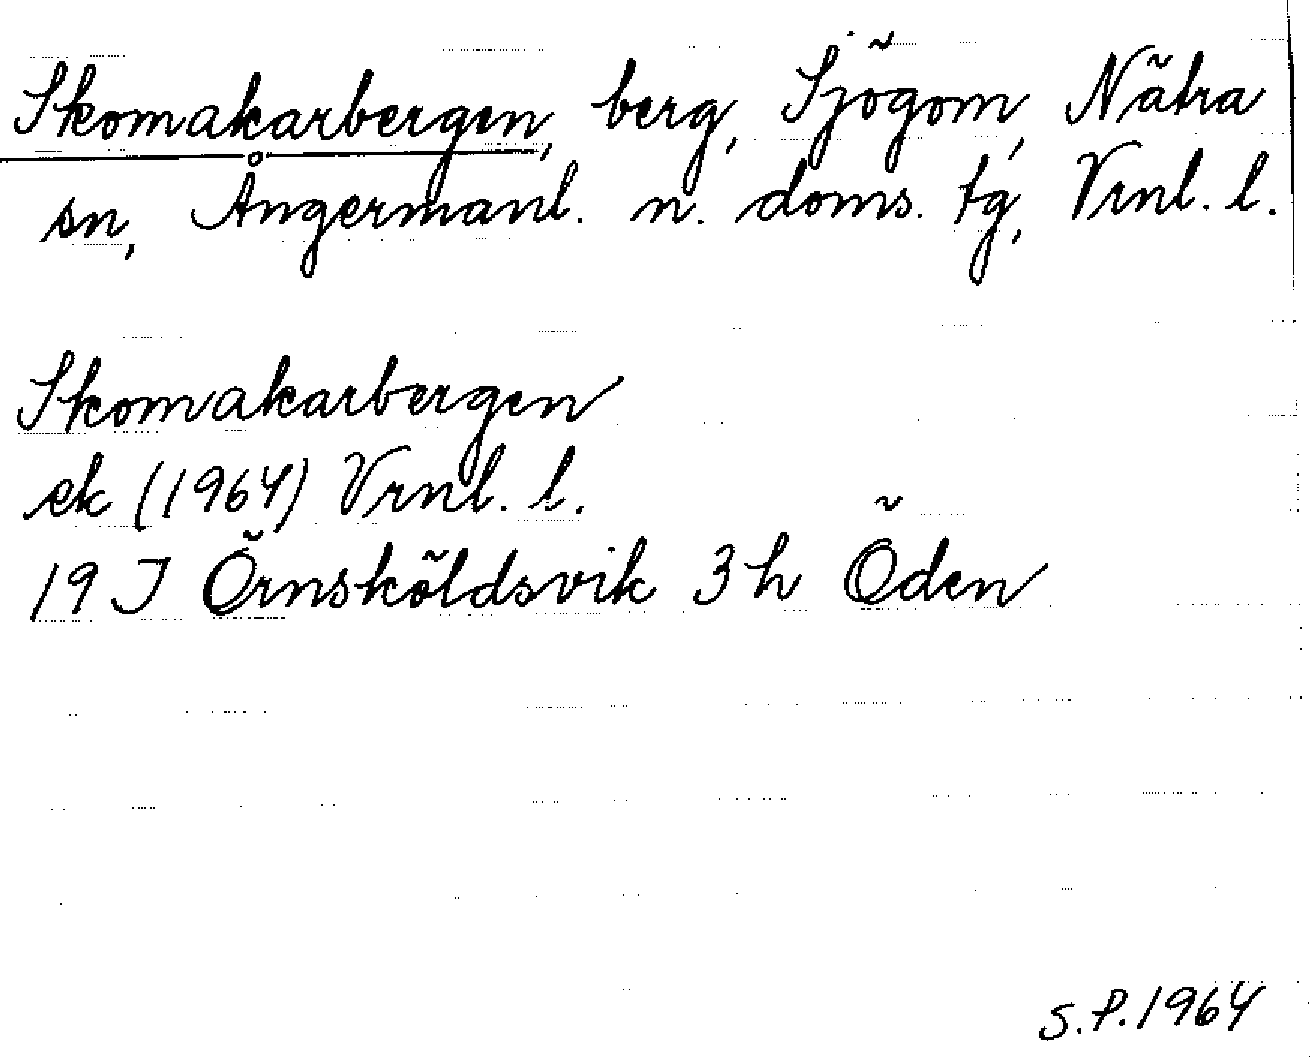 Skomakarbergen, berg, Sjögom, Nätra
sn, Ångermanl. n. doms. tg, Vrnl. l.
Skomakarbergen
ek (1964) Vrnl. l.
19 J Örnsköldsvik 3h Öden
S.P.1964